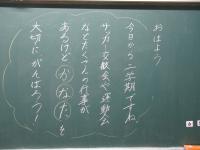 おはよう！
今日から二学期ですね
サッカー交歓会や運動会
などたくさんの行事が
あるけど かなた を
大切にがんばろう！